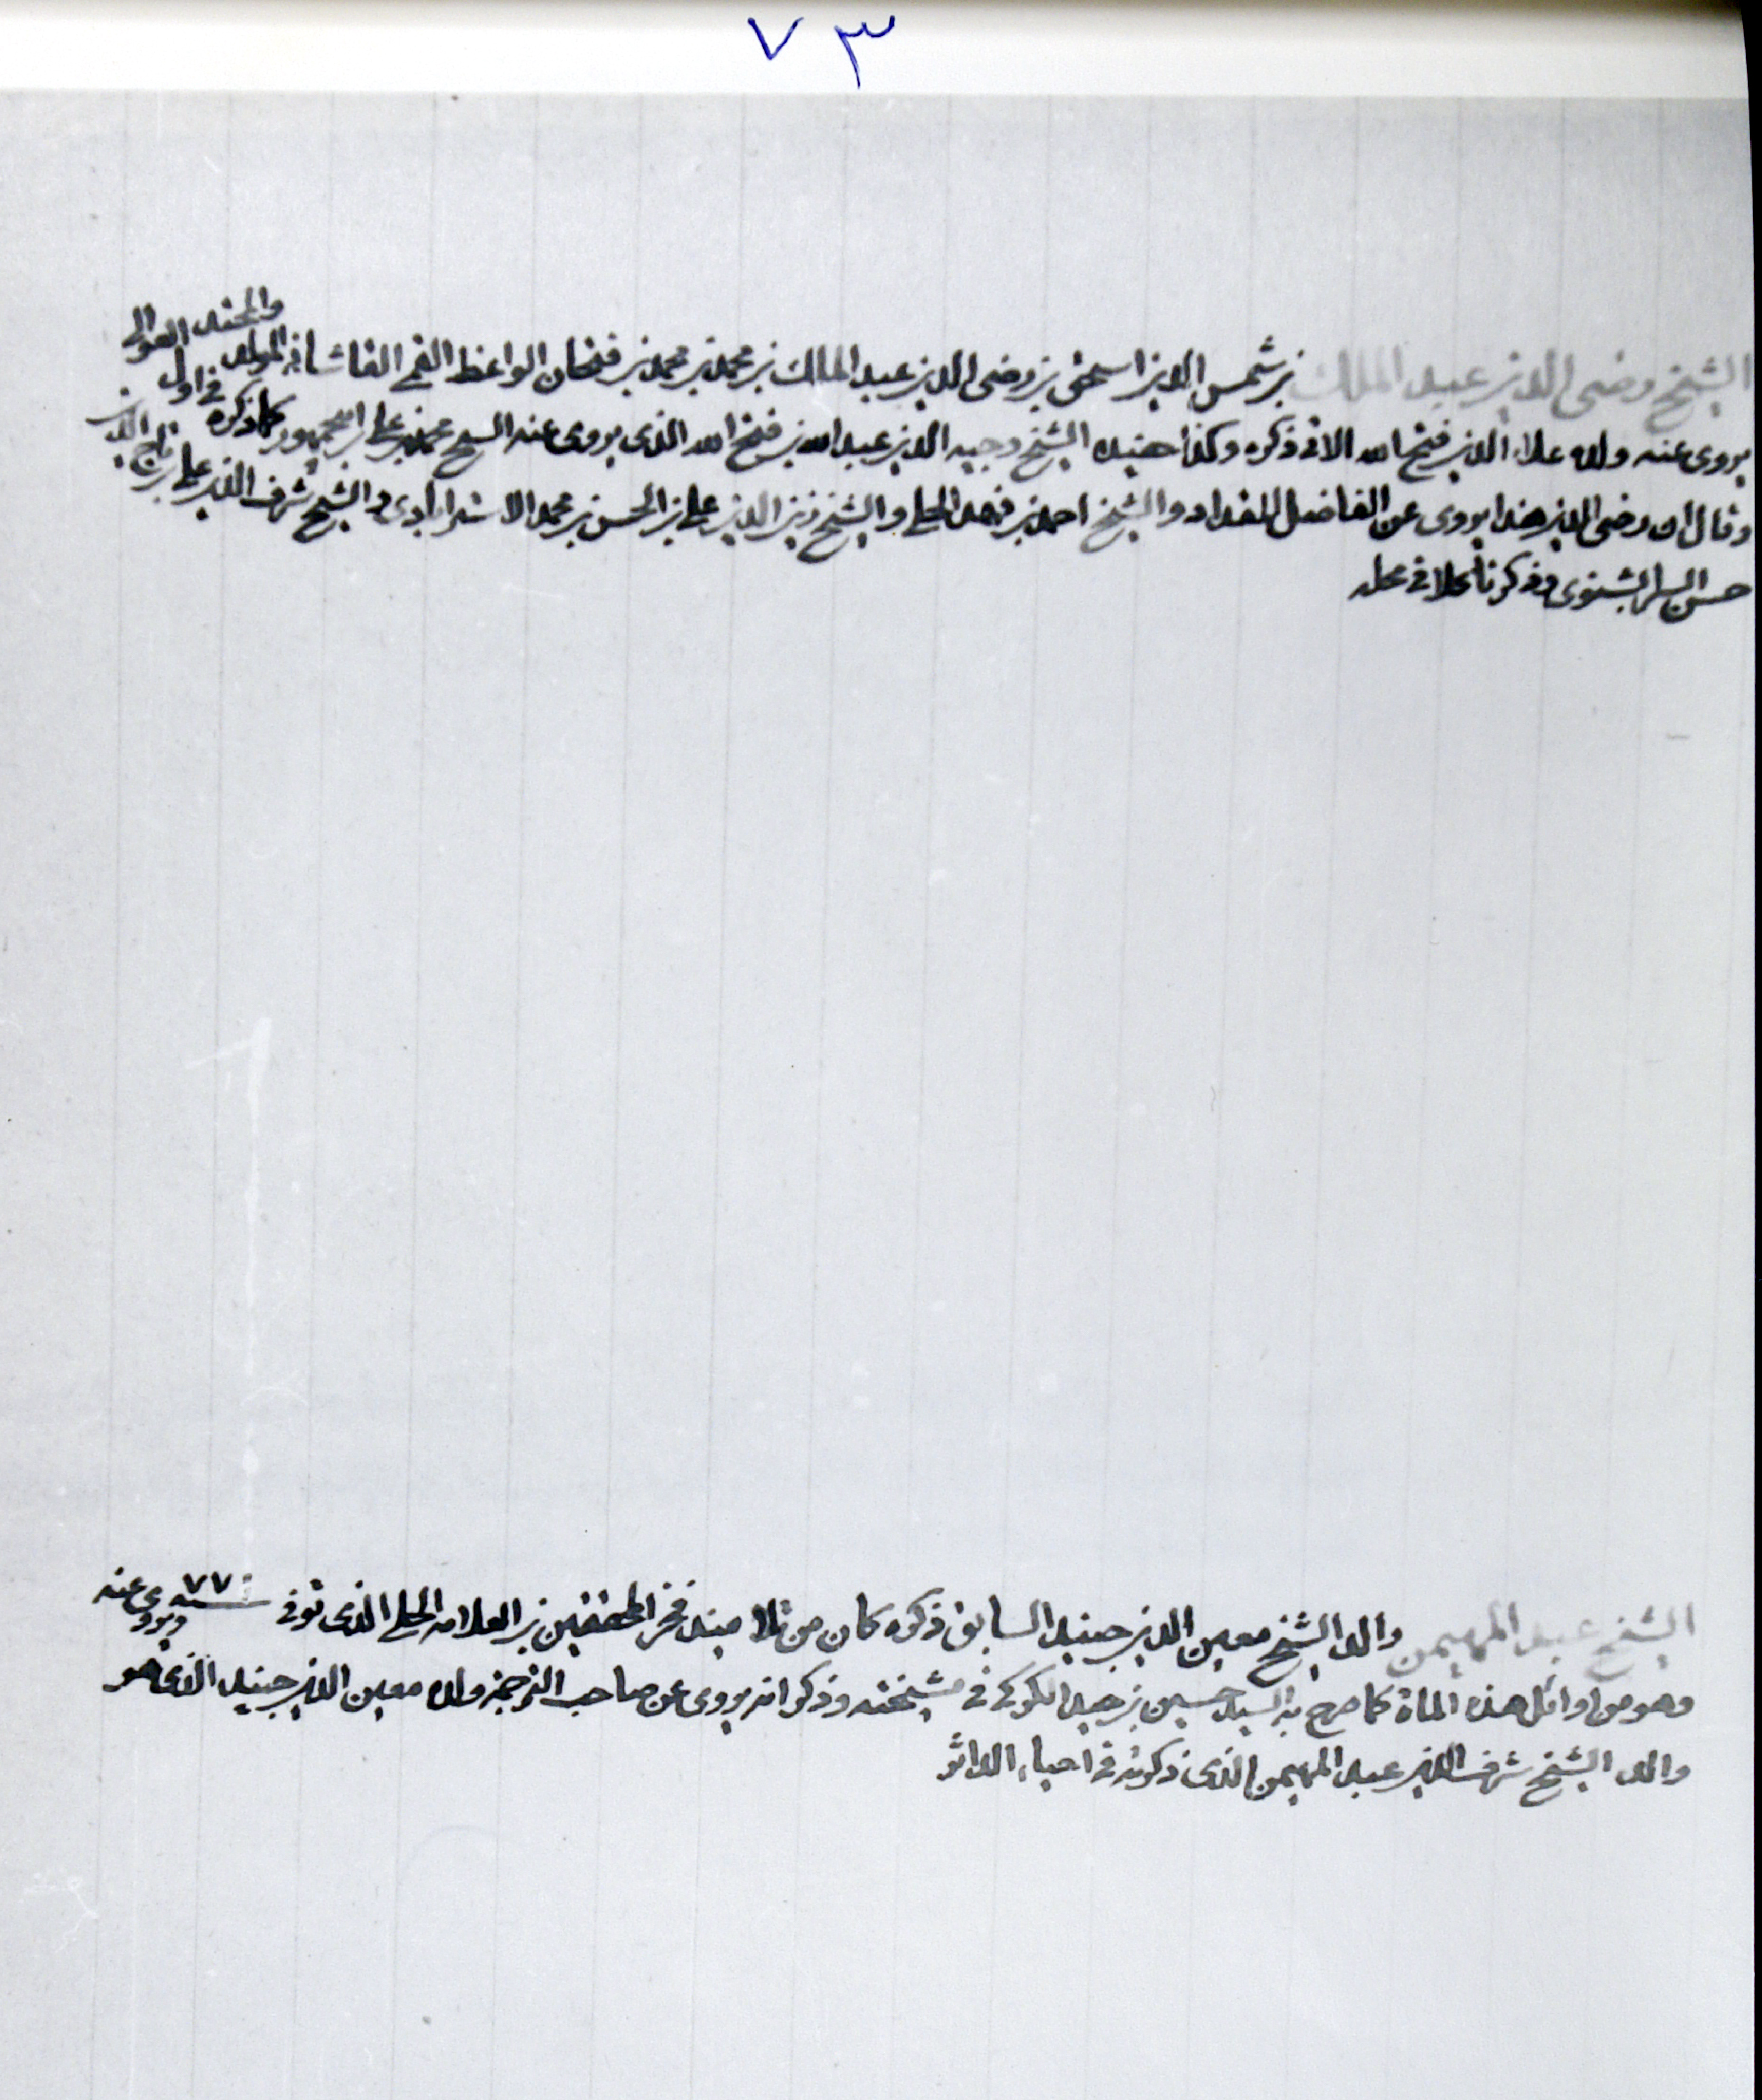 ٧٣
الشيخ رضى الدين عبد الملك بن شمس الدين اسحق بن رضى الدين عبد الملك بن محمد بن محمد بن فتحان الواعظ القمى القاشانى المولد والمحتد
يروى عنه ولده علاء الدين فتح الله الاتى ذكره وكذا حفيده الشيخ وجيه الدين عبد الله بن فتح الله الذى يروى عنه الشيخ محمد بن على بن ابى جمهور كما ذكره فى اول العوالى
وقال ان رضى الدين هذا يروى عن الفاضل المقداد والشيخ احمد بن فهد الحلى والشيخ زين الدين على بن الحسن بن محمد الاسترابادى والشيخ شرف الدين على بن تاج الدين
حسن السرابشنوى وذكرنا كلا فى محله
الشيخ عبد المهيمن والد الشيخ معين الدين جنيد السابق ذكره كان من تلاميذ فخر المحققين بن العلامة الحلى الذى توفى سنة ٧٧ ويروى عنه
وهو من اوائل هذه المأة كما صرح به السيد حسين بن حيدر الكركى فى مشيخته وذكر انه يروى عن صاحب الترجمة ولده معين الدين جنيد الذى هو
والد الشيخ شرف الدين عبد المهيمن الذى ذكرته فى احياء الداثر